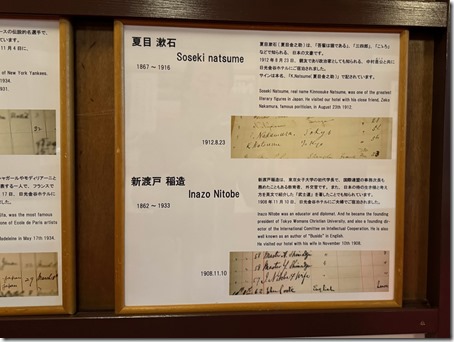 ースの伝説的名選手で、
ています。
11 月 4 日に、
of New York Yankees.
1934.
931.
シャガールやモディリアーニと
17 日、日光金谷ホテルに
was the most famous
ons of Ecole de Paris artists
Madeleine in May 17th 1934.
夏目 漱石
Soseki natsume
1867 ～ 1916
夏目漱石(夏目金之助)は、『吾輩は猫である』、『三四郎』、『こゝろ』
などで知られる、日本の文豪です。
1912 年 8 月 23 日、親友であり政治家としても知られる、中村是公と共に
日光金谷ホテルにご宿泊されました。
サインは本名、「K.Natsume(夏目金之助)」で記されています。
Soseki Natsume, real name Kinnosuke Natsume, was one of the greatest
literary figures in Japan. He visited our hotel with his close friend, Zeko
Nakamura, famous politician, in August 23th 1912.
1912.8.23
Nakamura Tokyo
K Natsume Tokyo
新渡戸 稲造
Inazo Nitobe
1862 ～ 1933
新渡戸稲造は、東京女子大学の初代学長で、国際連盟の事務次長も
務めたこともある教育者、外交官です。また、日本の侍の生き様と考え
方を英文で紹介した『武士道』を著したことでも知られています。
1908 年 11 月 10 日、日光金谷ホテルにご夫婦でご宿泊されました。
Inazo Nitobe was an educator and diplomat. And he became the founding
president of Tokyo Womans Christian University, and also a founding dir-
ector of the International Committee on Intellectual Cooperation. He is also
well known as an author of "Bushido" in English.
He visited our hotel with his wife in November 10th 1908.
1908.11.10
Nitobe & Wife
English